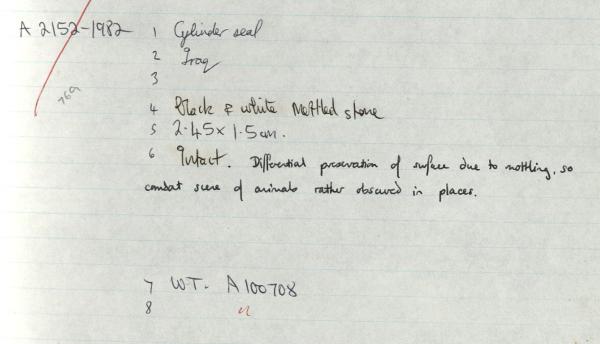 A 2152-1982 1 Cylinder seal
2 Iraq
769
3
4 Black & white Mottled stone
5 2.45 x 1.5 cm.
6 Intact. Differential preservation of surface due to mottling, so
combat scene of animals rather obscured in places.
7 W.T. A100708
8